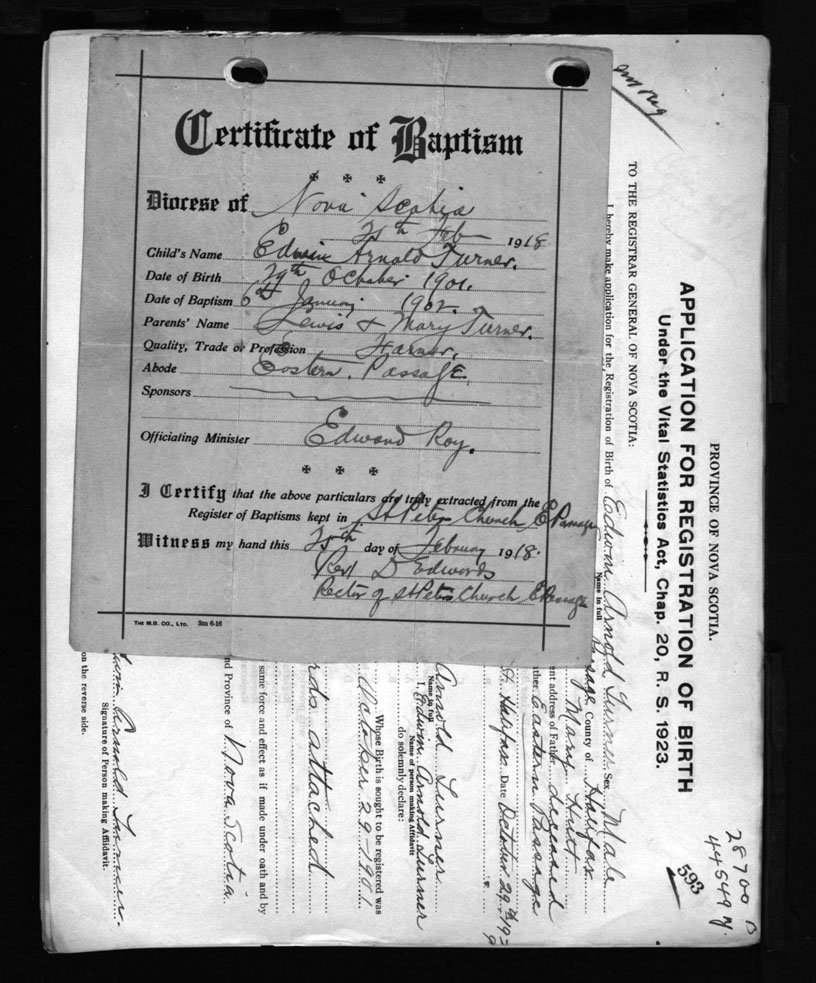 Certificate of Baptism
Diocese of Nova Scotia
25th Feb 1918
Child's Name Edwin Arnold Turner.
Date of Birth 29th October 1901.
Date of Baptism 6th January 1902.
Parents' Name Lewis & Mary Turner.
Quality, Trade or Profession Farmer.
Abode Eastern Passage.
Sponsors
Officiating Minister Edward Roy.
I Certify that the above particulars are truly extracted from the
Register of Baptisms kept in St Peters Church E Passage
Witness my hand this 25th day of February 1918.
Rev D Edwards
Rector of St Peters Church E Passage
THE M.B. CO., LTD. 3m 6-16
PROVINCE OF NOVA SCOTIA.
APPLICATION FOR REGISTRATION OF BIRTH
Under the Vital Statistics Act, Chap. 20, R. S. 1923.
TO THE REGISTRAR GENERAL OF NOVA SCOTIA:
I hereby make application for the Registration of Birth of Edwin Arnold Turner Sex Male
Name in full
County of Halifax
Mary
ent address of Father deceased
ther Eastern Passage
Halifax Date October 29th 193
Arnold Turner
Name in full
I, Edwin Arnold Turner
Name of person making Affidavit
do solemnly declare:
Whose Birth is sought to be registered was
October 29-1901
rds attached
same force and effect as if made under oath and by
nd Province of Nova Scotia
win Arnold Turner.
Signature of Person making Affidavit.
on the reverse side.
28700 B
44549 M.
593